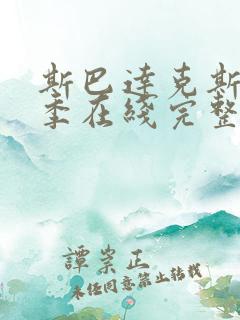 斯巴达克斯
季在线完整
谭崇正
未经同意禁止转载